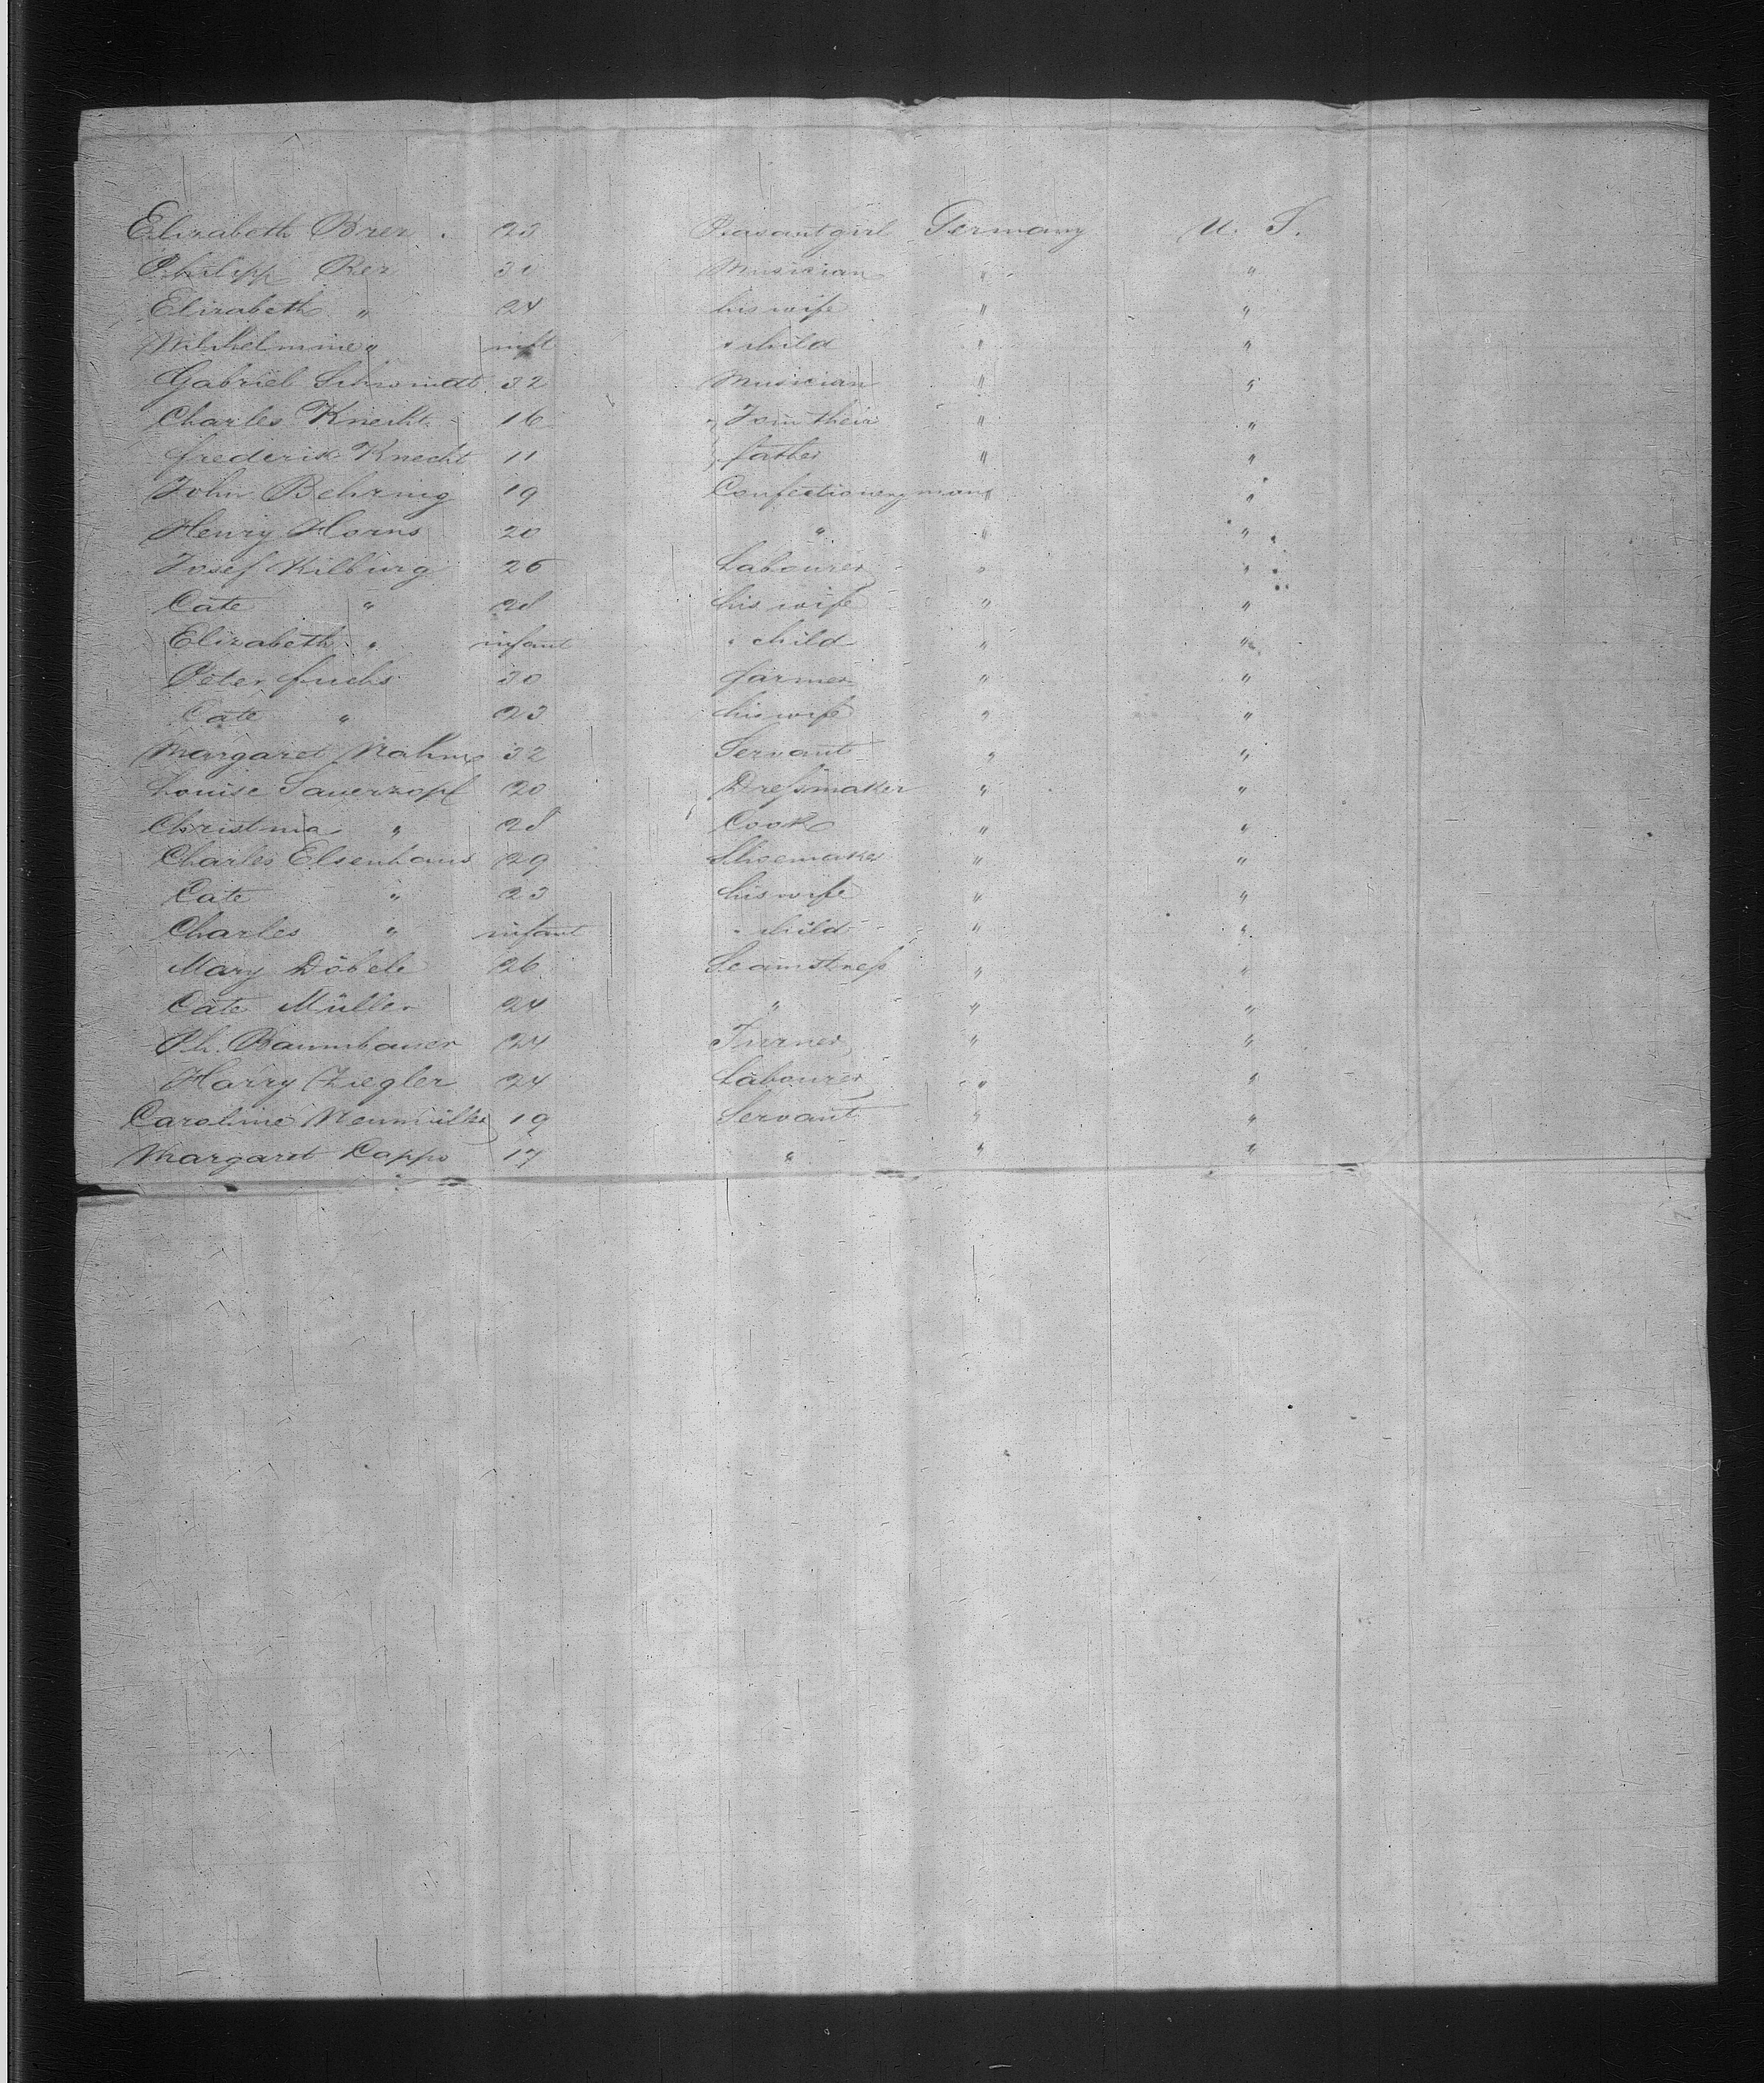 Elizabeth Bren . 23 Peasant girl Germany U. S.
Philipp Rex 31 Musician " "
Elizabeth " 24 his wife " "
Wilhelmine " inft " child " "
Gabriel Schwindt 32 Musician " "
Charles Knecht 16 Join their " "
frederik Knecht 11 father " "
John Behring 19 Confectionery man " "
Henry Horns 20 " " "
Josef Kilburg 26 Labourer " "
Cate " 28 his wife " "
Elizabeth " infant " child " "
Peter fuchs 30 farmer " "
Cate " 23 his wife " "
Margaret Nahm 32 Servant " "
Louise Sauerzopf 20 Dressmaker " "
Christina " 28 Cook " "
Charles Elsenhans 29 Shoemaker " "
Cate " 23 his wife " "
Charles " infant " child " "
Mary Döbele 26 Seamstress " "
Cate Müller 24 " " "
Ph. Baumbauer 24 Turner " "
Harry Ziegler 24 Labourer " "
Caroline Neumüller 19 Servant " "
Margaret Capps 17 " " "